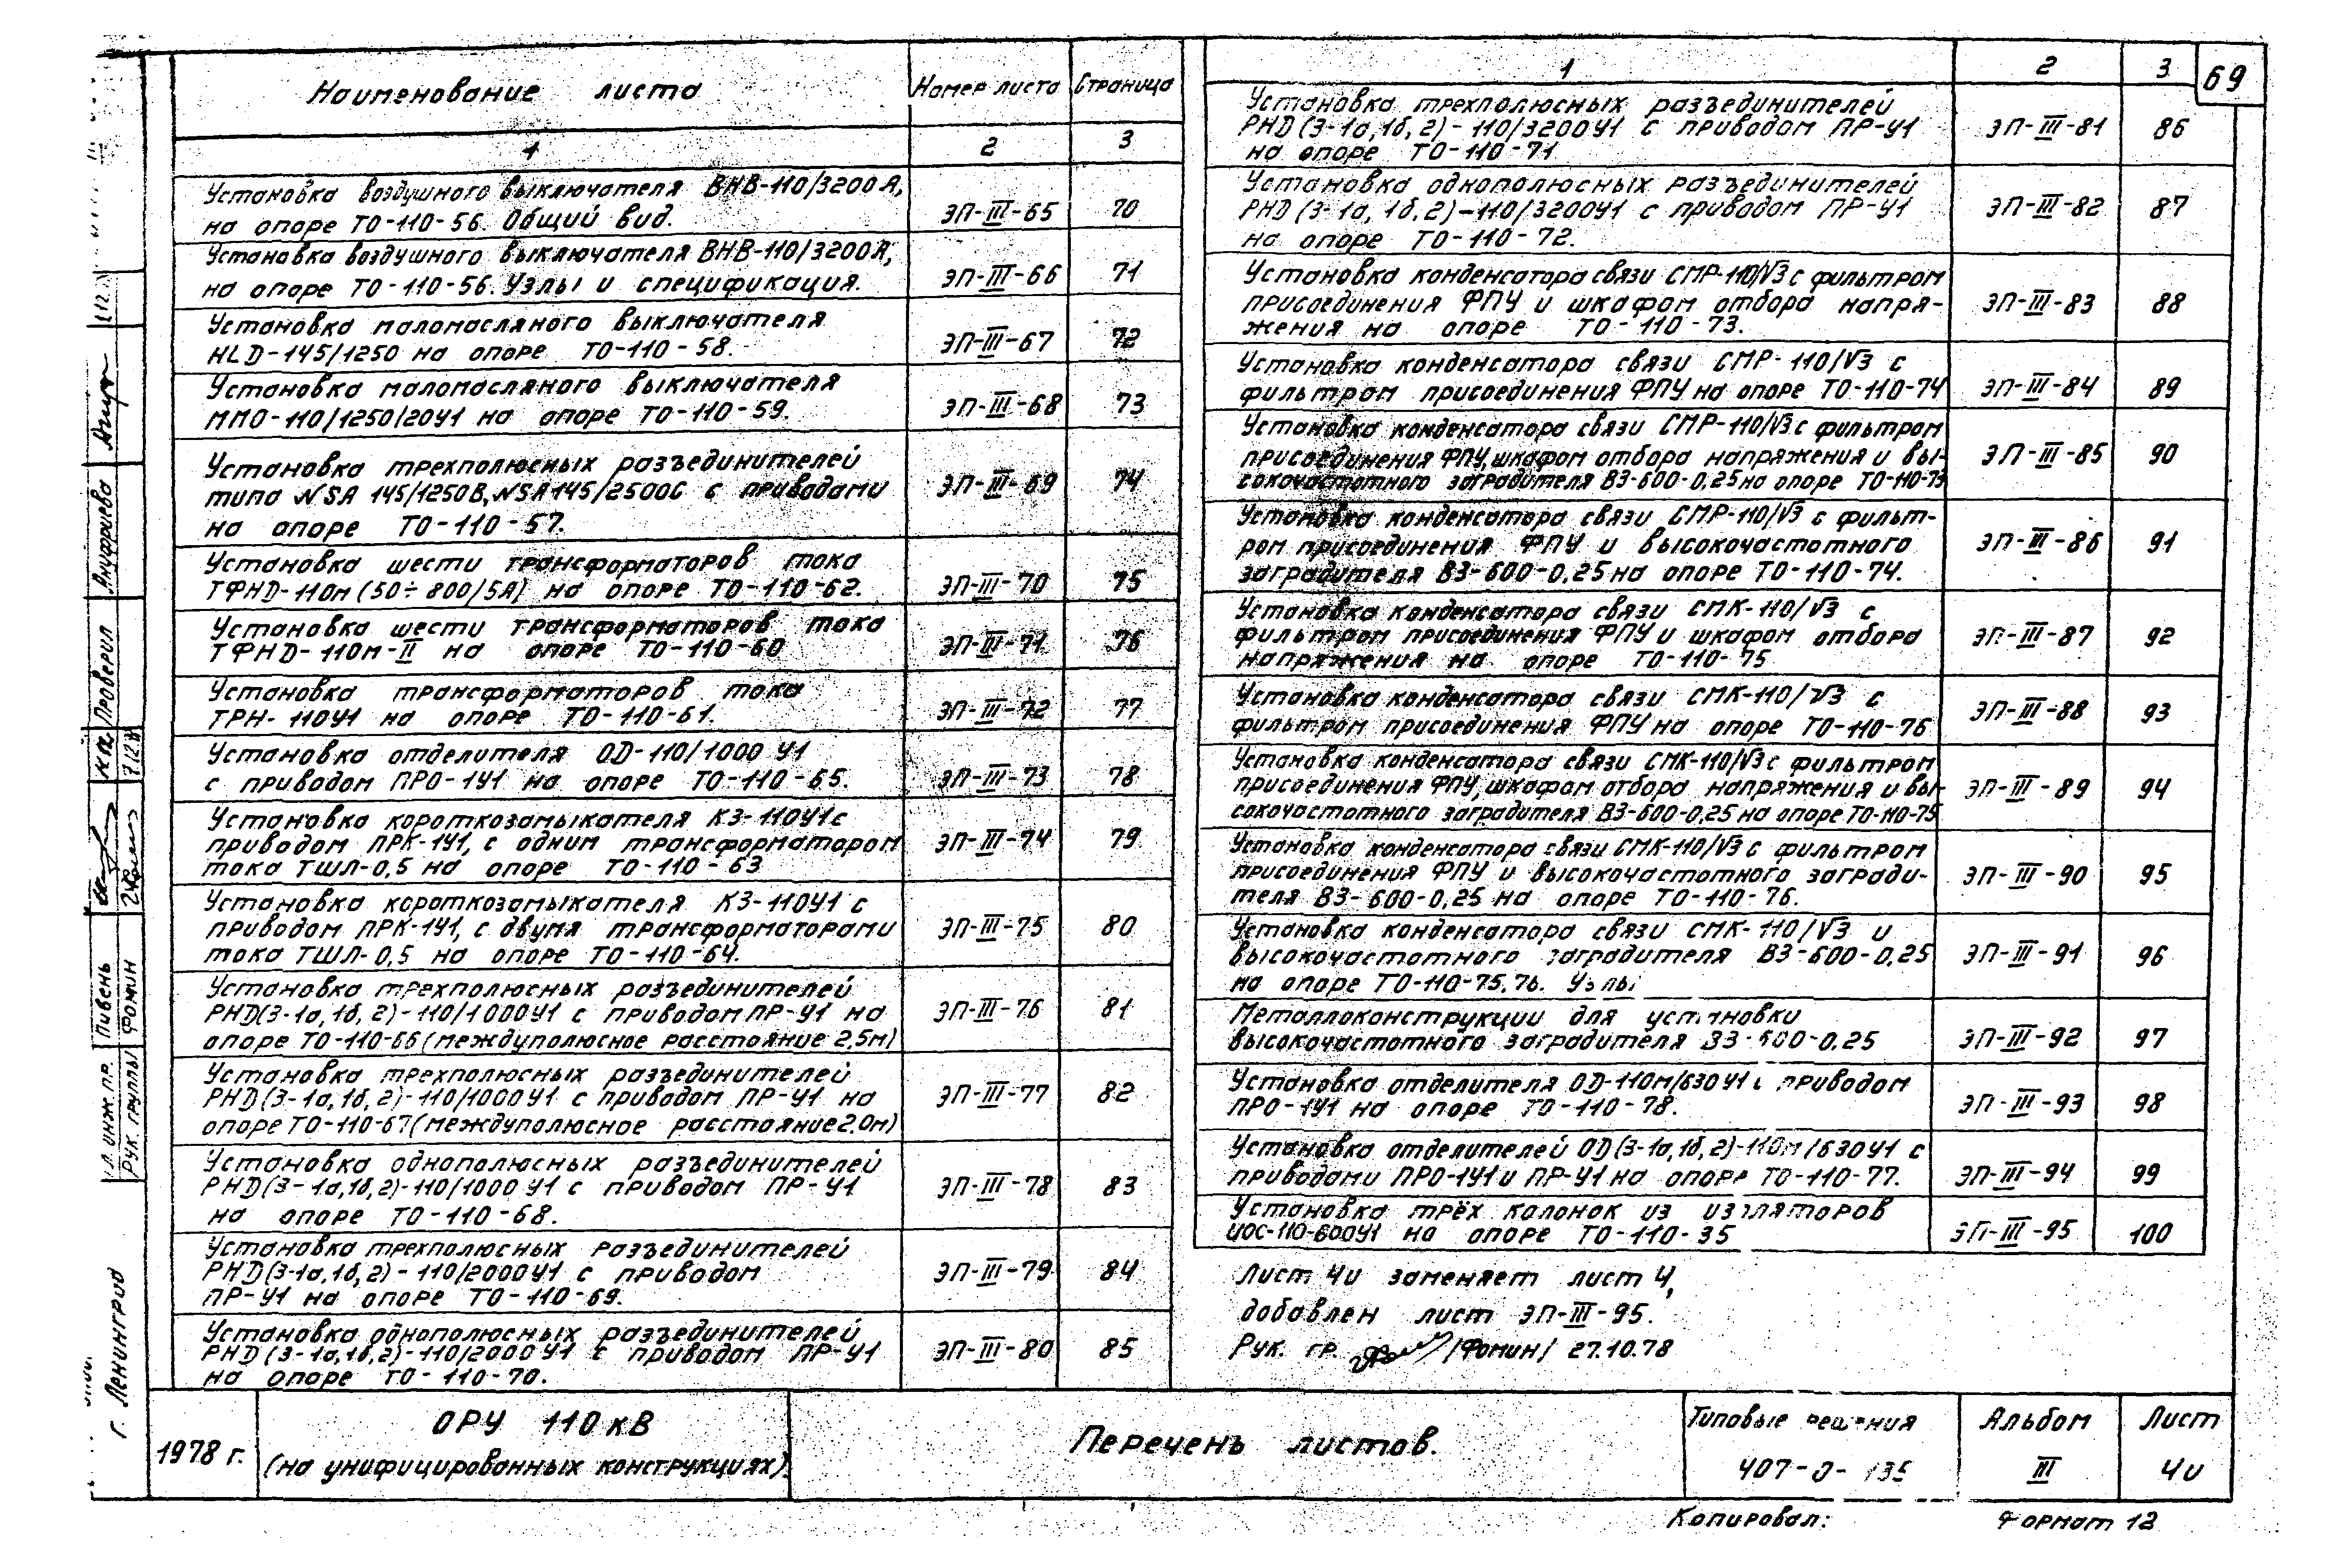 69
Наименование листа
Номер листа
Страница
1
2
3
Установка воздушного выключателя ВНВ-110/3200А,
на опоре ТО-110-56. Общий вид.
ЭП-III-65
70
Установка воздушного выключателя ВНВ-110/3200А,
на опоре ТО-110-56. Узлы и спецификация.
ЭП-III-66
71
Установка маломасляного выключателя
HLD-145/1250 на опоре ТО-110-58.
ЭП-III-67
72
Установка маломасляного выключателя
ММО-110/1250/20У1 на опоре ТО-110-59.
ЭП-III-68
73
Установка трехполюсных разъединителей
типа NSA 145/1250В, NSA145/2500С с приводами
на опоре ТО-110-57.
ЭП-III-69
74
Установка шести трансформаторов тока
ТФНД-110м (50÷800/5А) на опоре ТО-110-62.
ЭП-III-70
75
Установка шести трансформаторов тока
ТФНД-110м-II на опоре ТО-110-60
ЭП-III-71
76
Установка трансформаторов тока
ТРН-110У1 на опоре ТО-110-61.
ЭП-III-72
77
Установка отделителя ОД-110/1000 У1
с приводом ПРО-1У1 на опоре ТО-110-65.
ЭП-III-73
78
Установка короткозамыкателя КЗ-110У1 с
приводом ПРК-1У1, с одним трансформатором
тока ТШЛ-0,5 на опоре ТО-110-63
ЭП-III-74
79
Установка короткозамыкателя КЗ-110У1 с
приводом ПРК-1У1, с двумя трансформаторами
тока ТШЛ-0,5 на опоре ТО-110-64.
ЭП-III-75
80
Установка трехполюсных разъединителей
РНД(З-1а,1б,2)-110/1000У1 с приводом ПР-У1 на
опоре ТО-110-66 (междуполюсное расстояние 2,5м)
ЭП-III-76
81
Установка трехполюсных разъединителей
РНД(З-1а,1б,2)-110/1000У1 с приводом ПР-У1 на
опоре ТО-110-67 (междуполюсное расстояние 2.0м)
ЭП-III-77
82
Установка однополюсных разъединителей
РНД(З-1а,1б,2)-110/1000 У1 с приводом ПР-У1
на опоре ТО-110-68.
ЭП-III-78
83
Установка трехполюсных разъединителей
РНД(З-1а,1б,2)-110/2000У1 с приводом
ПР-У1 на опоре ТО-110-69.
ЭП-III-79
84
Установка однополюсных разъединителей
РНД(З-1а,1б,2)-110/2000У1 с приводом ПР-У1
на опоре ТО-110-70.
ЭП-III-80
85
1
2
3
Установка трехполюсных разъединителей
РНД(З-1а,1б,2)-110/3200У1 с приводом ПР-У1
на опоре ТО-110-71
ЭП-III-81
86
Установка однополюсных разъединителей
РНД(З-1а, 1б,2)-110/3200У1 с приводом ПР-У1
на опоре ТО-110-72.
ЭП-III-82
87
Установка конденсатора связи СМР-110/√3 с фильтром
присоединения ФПУ и шкафом отбора напря-
жения на опоре ТО-110-73.
ЭП-III-83
88
Установка конденсатора связи СМР-110/√3 с
фильтром присоединения ФПУ на опоре ТО-110-74
ЭП-III-84
89
Установка конденсатора связи СМР-110/√3 с фильтром
присоединения ФПУ, шкафом отбора напряжения и вы-
сокочастотного заградителя ВЗ-600-0,25 на опоре ТО-110-73
ЭП-III-85
90
Установка конденсатора связи СМР-110/√3 с фильт-
ром присоединения ФПУ и высокочастотного
заградителя ВЗ-600-0,25 на опоре ТО-110-74.
ЭП-III-86
91
Установка конденсатора связи СМК-110/√3 с
фильтром присоединения ФПУ и шкафом отбора
напряжения на опоре ТО-110-75
ЭП-III-87
92
Установка конденсатора связи СМК-110/√3 с
фильтром присоединения ФПУ на опоре ТО-110-76
ЭП-III-88
93
Установка конденсатора связи СМК-110/√3 с фильтром
присоединения ФПУ, шкафом отбора напряжения и вы-
сокочастотного заградителя ВЗ-600-0,25 на опоре ТО-110-75
ЭП-III-89
94
Установка конденсатора связи СМК-110/√3 с фильтром
присоединения ФПУ и высокочастотного загради-
теля ВЗ-600-0,25 на опоре ТО-110-76.
ЭП-III-90
95
Установка конденсатора связи СМК-110/√3 и
высокочастотного заградителя ВЗ-600-0,25
на опоре ТО-110-75,76. Узлы
ЭП-III-91
96
Металлоконструкции для установки
высокочастотного заградителя ВЗ-600-0,25
ЭП-III-92
97
Установка отделителя ОД-110м/630У1 с приводом
ПРО-1У1 на опоре ТО-110-78.
ЭП-III-93
98
Установка отделителей ОД(З-1а,1б,2)-110м/630У1 с
приводами ПРО-1У1 и ПР-У1 на опоре ТО-110-77.
ЭП-III-94
99
Установка трёх колонок из изоляторов
ЦОС-110-600У1 на опоре ТО-110-35
ЭП-III-95
100
Лист 4и заменяет лист 4,
добавлен лист ЭП-III-95.
Рук. гр. /Фомин/ 27.10.78
1978 г.
ОРУ 110 кВ
(на унифицированных конструкциях).
Перечень листов.
Типовые решения
407-0-135
Альбом
III
Лист
4и
Копировал:
Формат 12
г. Ленинград
Гл. инж. пр.
Пивень
Рук. группы
Фомин
Проверил
Ануфриева